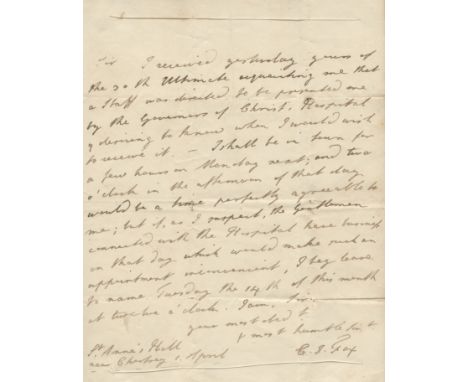 Sir I received yesterday yours of
the 30th Ultimate acquainting me that
a Staff was directed to be presented me
by the Governors of Christ's Hospital
& desiring to know when I would wish
to receive it. – I shall be in town for
a few hours on Monday next, and two
o'clock in the afternoon of that day
would be a time perfectly agreeable to
me; but if, as I suspect, the Gentlemen
connected with the Hospital have business
on that day which would make such an
appointment inconvenient, I beg leave
to name Tuesday the 14th of this month
at twelve o'clock. I am, Sir,
your most obed t
& most humble Ser t
C. J. Fox
St. Anne's Hill
near Chertsey 1 April